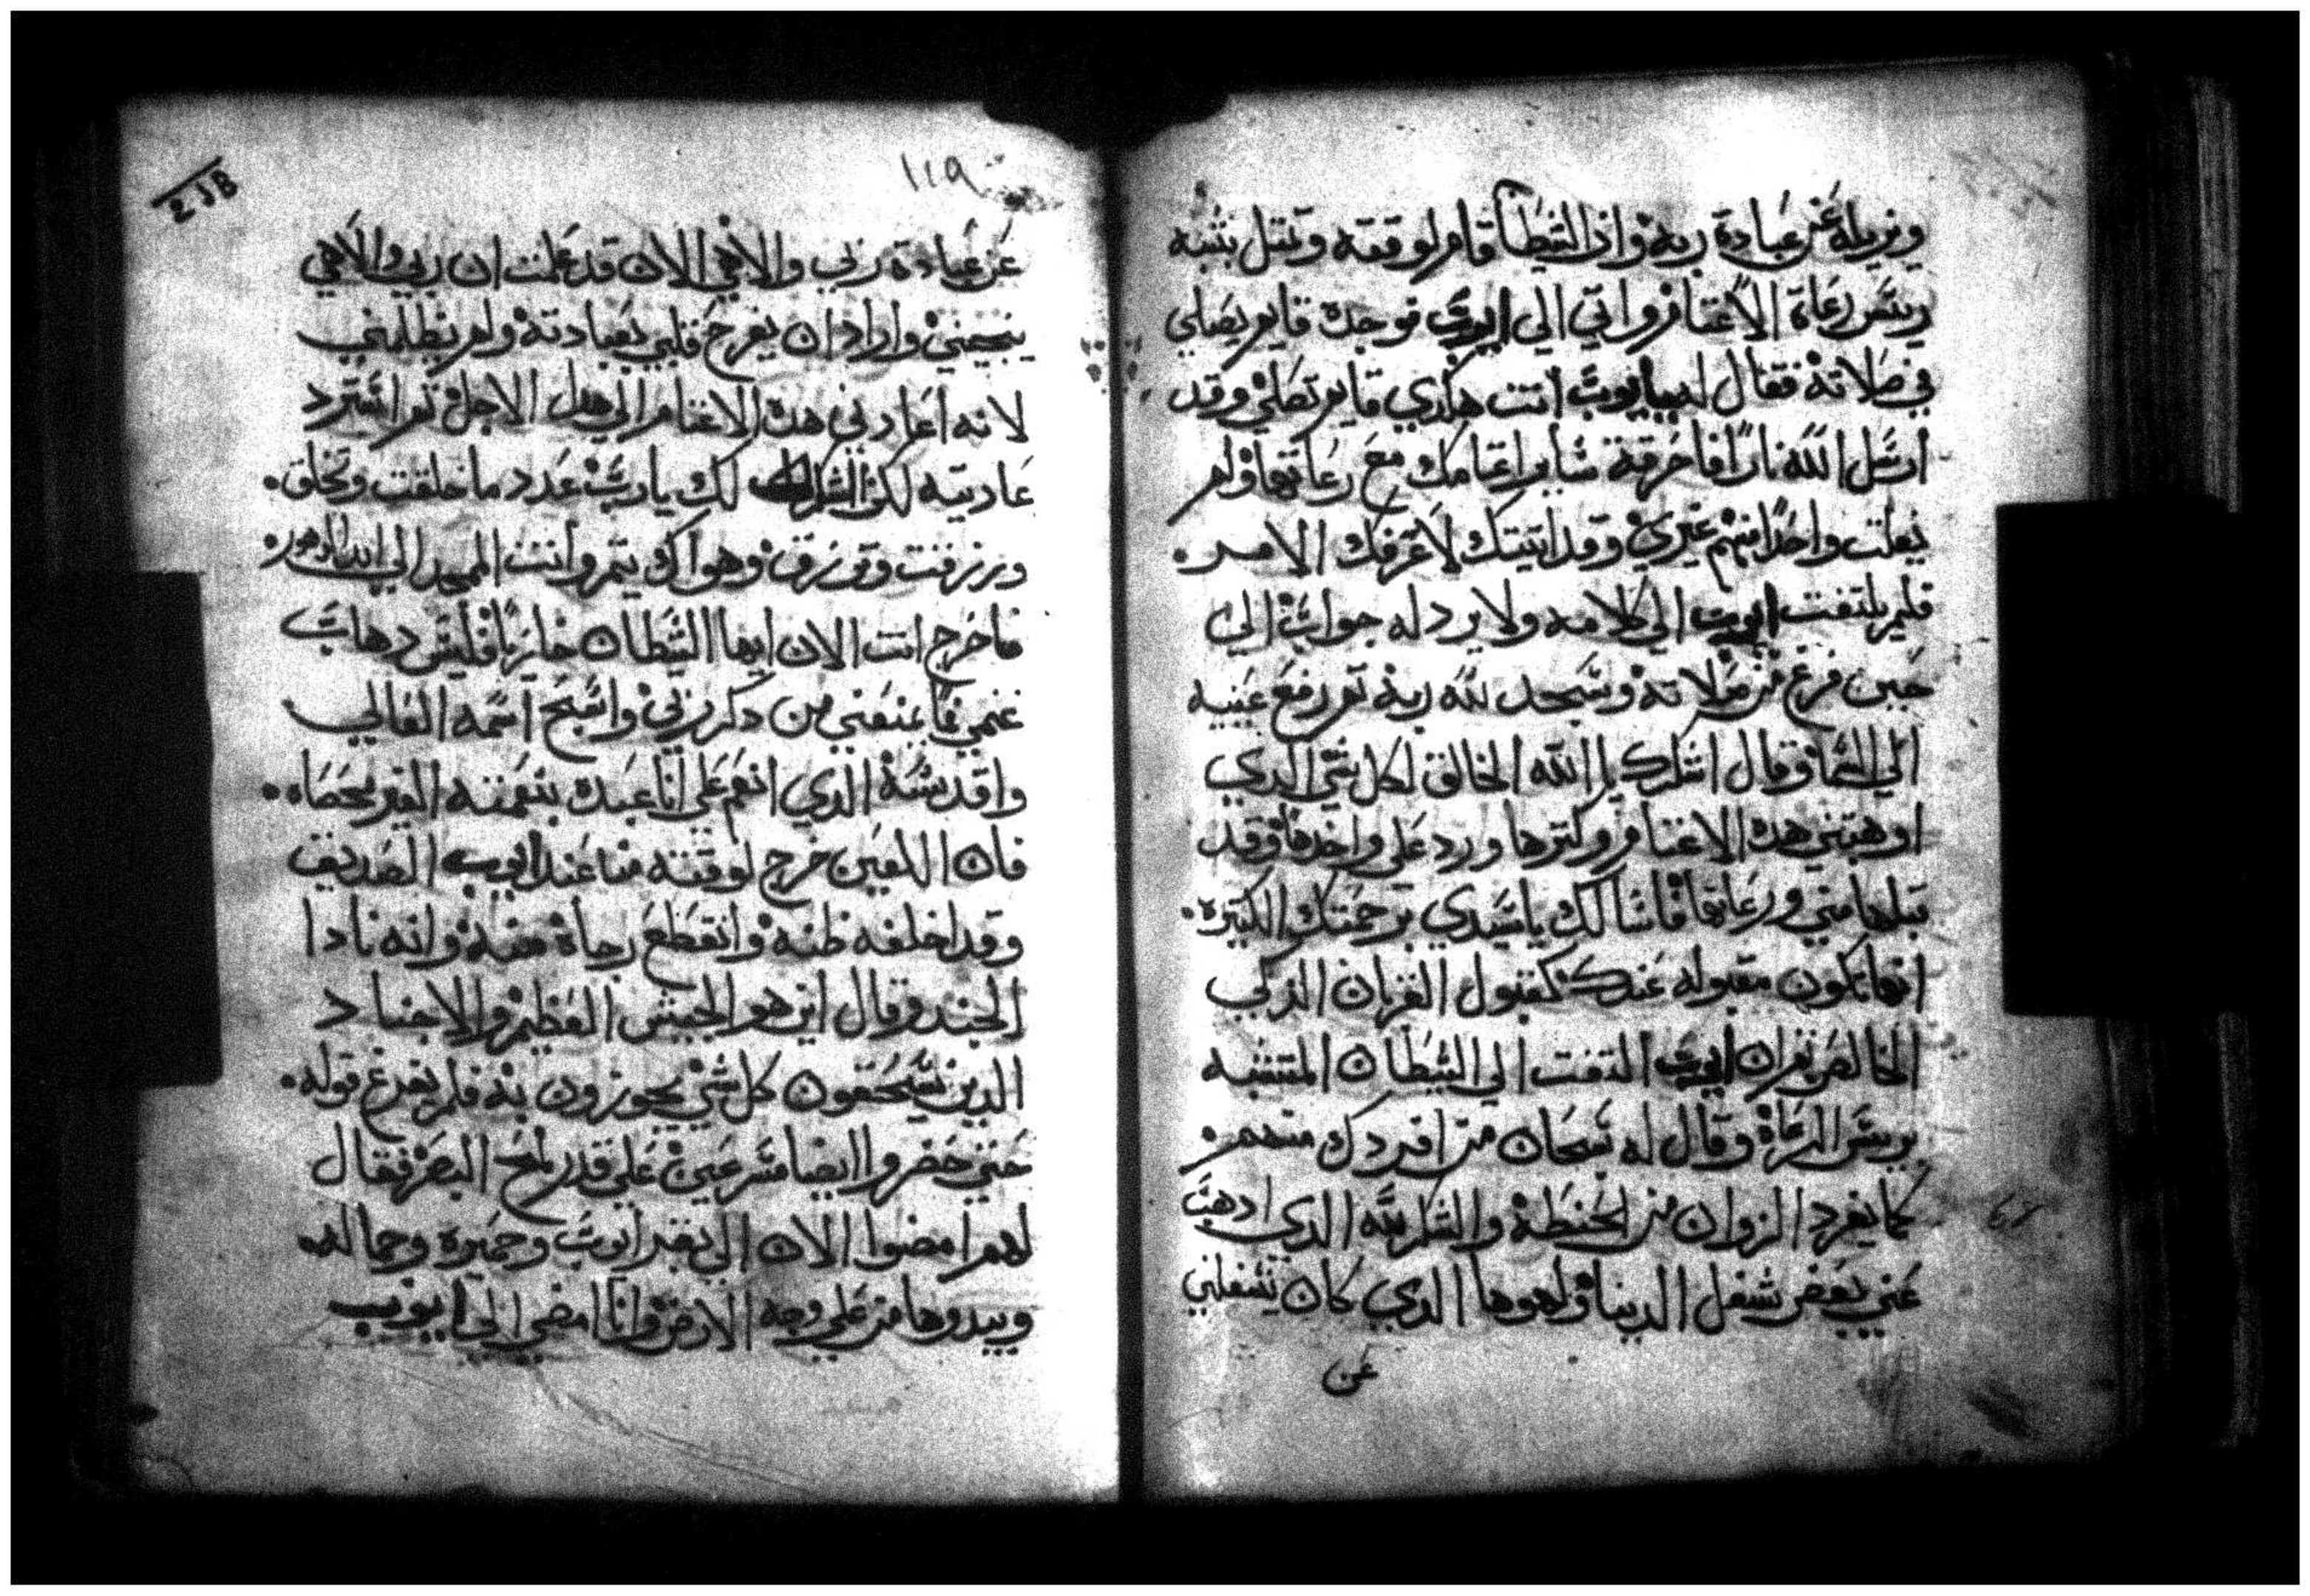 ويزيله عن عبادة ربه واذا الشيطان قام لوقته وتمثل بشبه
رييس رعاة الاغنام واتي الي ايوب فوجده قايم يصلي
في صلاته فقال له يا ايوب انت هاكدي قايم تصلي وقد
ارسل الله نارًا فاحرقة ساير اغنامك مع رعاتها ولم
يفلت واحدًا منهم غيري وقد اتيتك لاعرفك الامر.
فلم يلتفت ايوب الي كلامه ولا يرد له جواب الي
حين فرغ من صلاته وسجد لله ربه ثم رفع عينيه
الي السما وقال اشكرك يا الله الخالق لكل شي الدي
اوهبتني هده الاغنام وكترها ورد علي واخدها وقد
قبلها مني ورعاتها فاسالك يا سيدي برحمتك الكتيرة.
انها تكون مقبوله عندك كقبول القربان الزكي
الخالص ثم ان ايوب التفت الي الشيطان المتشبه
برييس الرعاة وقال له سبحان من افردك منهم.
كما يفرد الزوان من الحنطة والشكر لله الدي ادهب
عني بعض شغل الدنيا ولهوها الدي كان يشغلني
عن
١١٩
218
عن عبادة ربي والاهي الان قد علمت ان ربي والاهي
ينجيني واراد ان يفرح قلبي بعبادته ولم يظلمني
لانه اعارني هده الاغنام الي هدا الاجل ثم استرد
عاريته لك الشكر لك يا رب عدد ما خلقت وتخلق.
ورزقت وترزق وهواك يتم وانت الممجد الي ابد الدهور.
فاخرج انت الان ايها الشيطان خازيًا فليس دهاب
غنمي فا يمنعني من دكر ربي واسبح اسمه العالي
واقدسه الدي انعم علي انا عبده بنعمته الغير محصاه.
فان اللعين خرج لوقته من عند ايوب الصديق
وقد اخلفه ظنه وانقطع رجاه منه وانه نادا
الجند وقال اين هو الجيش العظيم والاجناد
الدين يسحقون كل شي يجوزون به فلم يفرغ قوله.
حتي حضروا ايضا مسرعين علي قدر لمح البصر فقال
لهم امضوا الان الي بقر ايوب وحميره وجماله
وبيدوها من علي وجه الارض وانا امضي الي ايوب